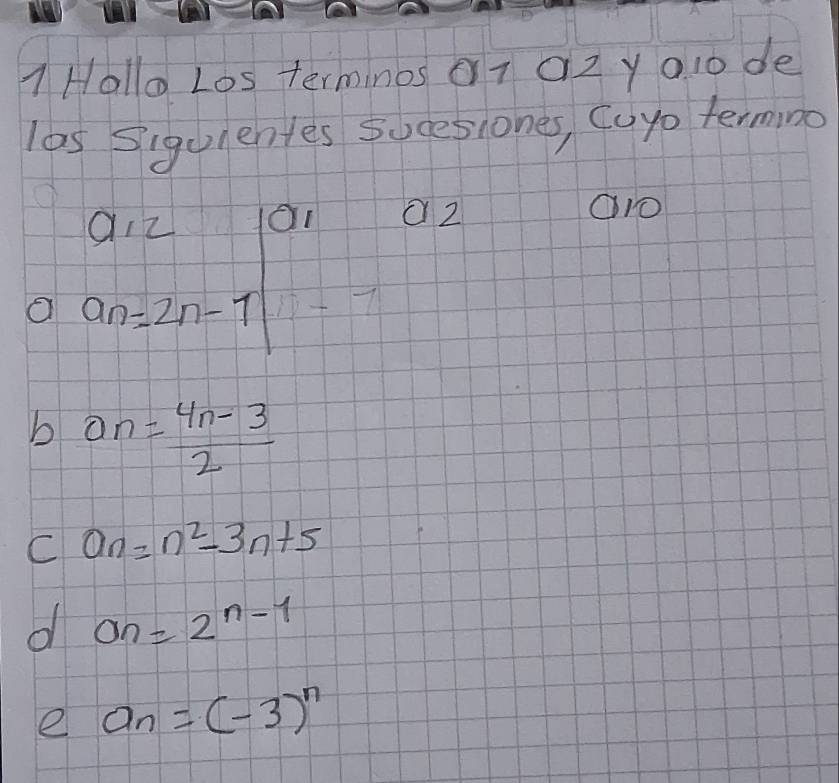 1 Halla Los terminos a1 a2 y a10 de
las siguientes sucesiones, cuyo termino
a12 | a1 a2 a10
a an=2n-1|
b an=4n-3/2
c an=n²-3n+5
d an=2ⁿ⁻¹
e an=(-3)ⁿ